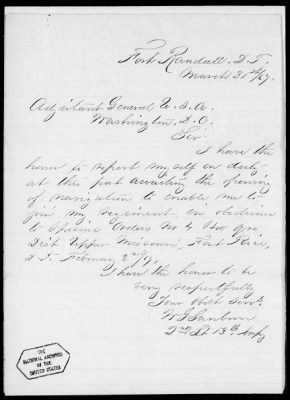 Fort Randall, D.T.
March 31st/67.
Adjutant General U.S.A.
Washington, D.C.
Sir:
I have the
honor to report myself on duty
at this post awaiting the opening
of navigation to enable me to
join my regiment in obedience
to Special Orders No 4 Hd Qrs
Dist Upper Missouri, Fort
D.T. February 2nd/67.
I have the honor to be
very respectfully
Your Obdt Servt,
W I Sanborn
2nd Lt 13th Infy
THE
NATIONAL ARCHIVES
OF THE
UNITED STATES